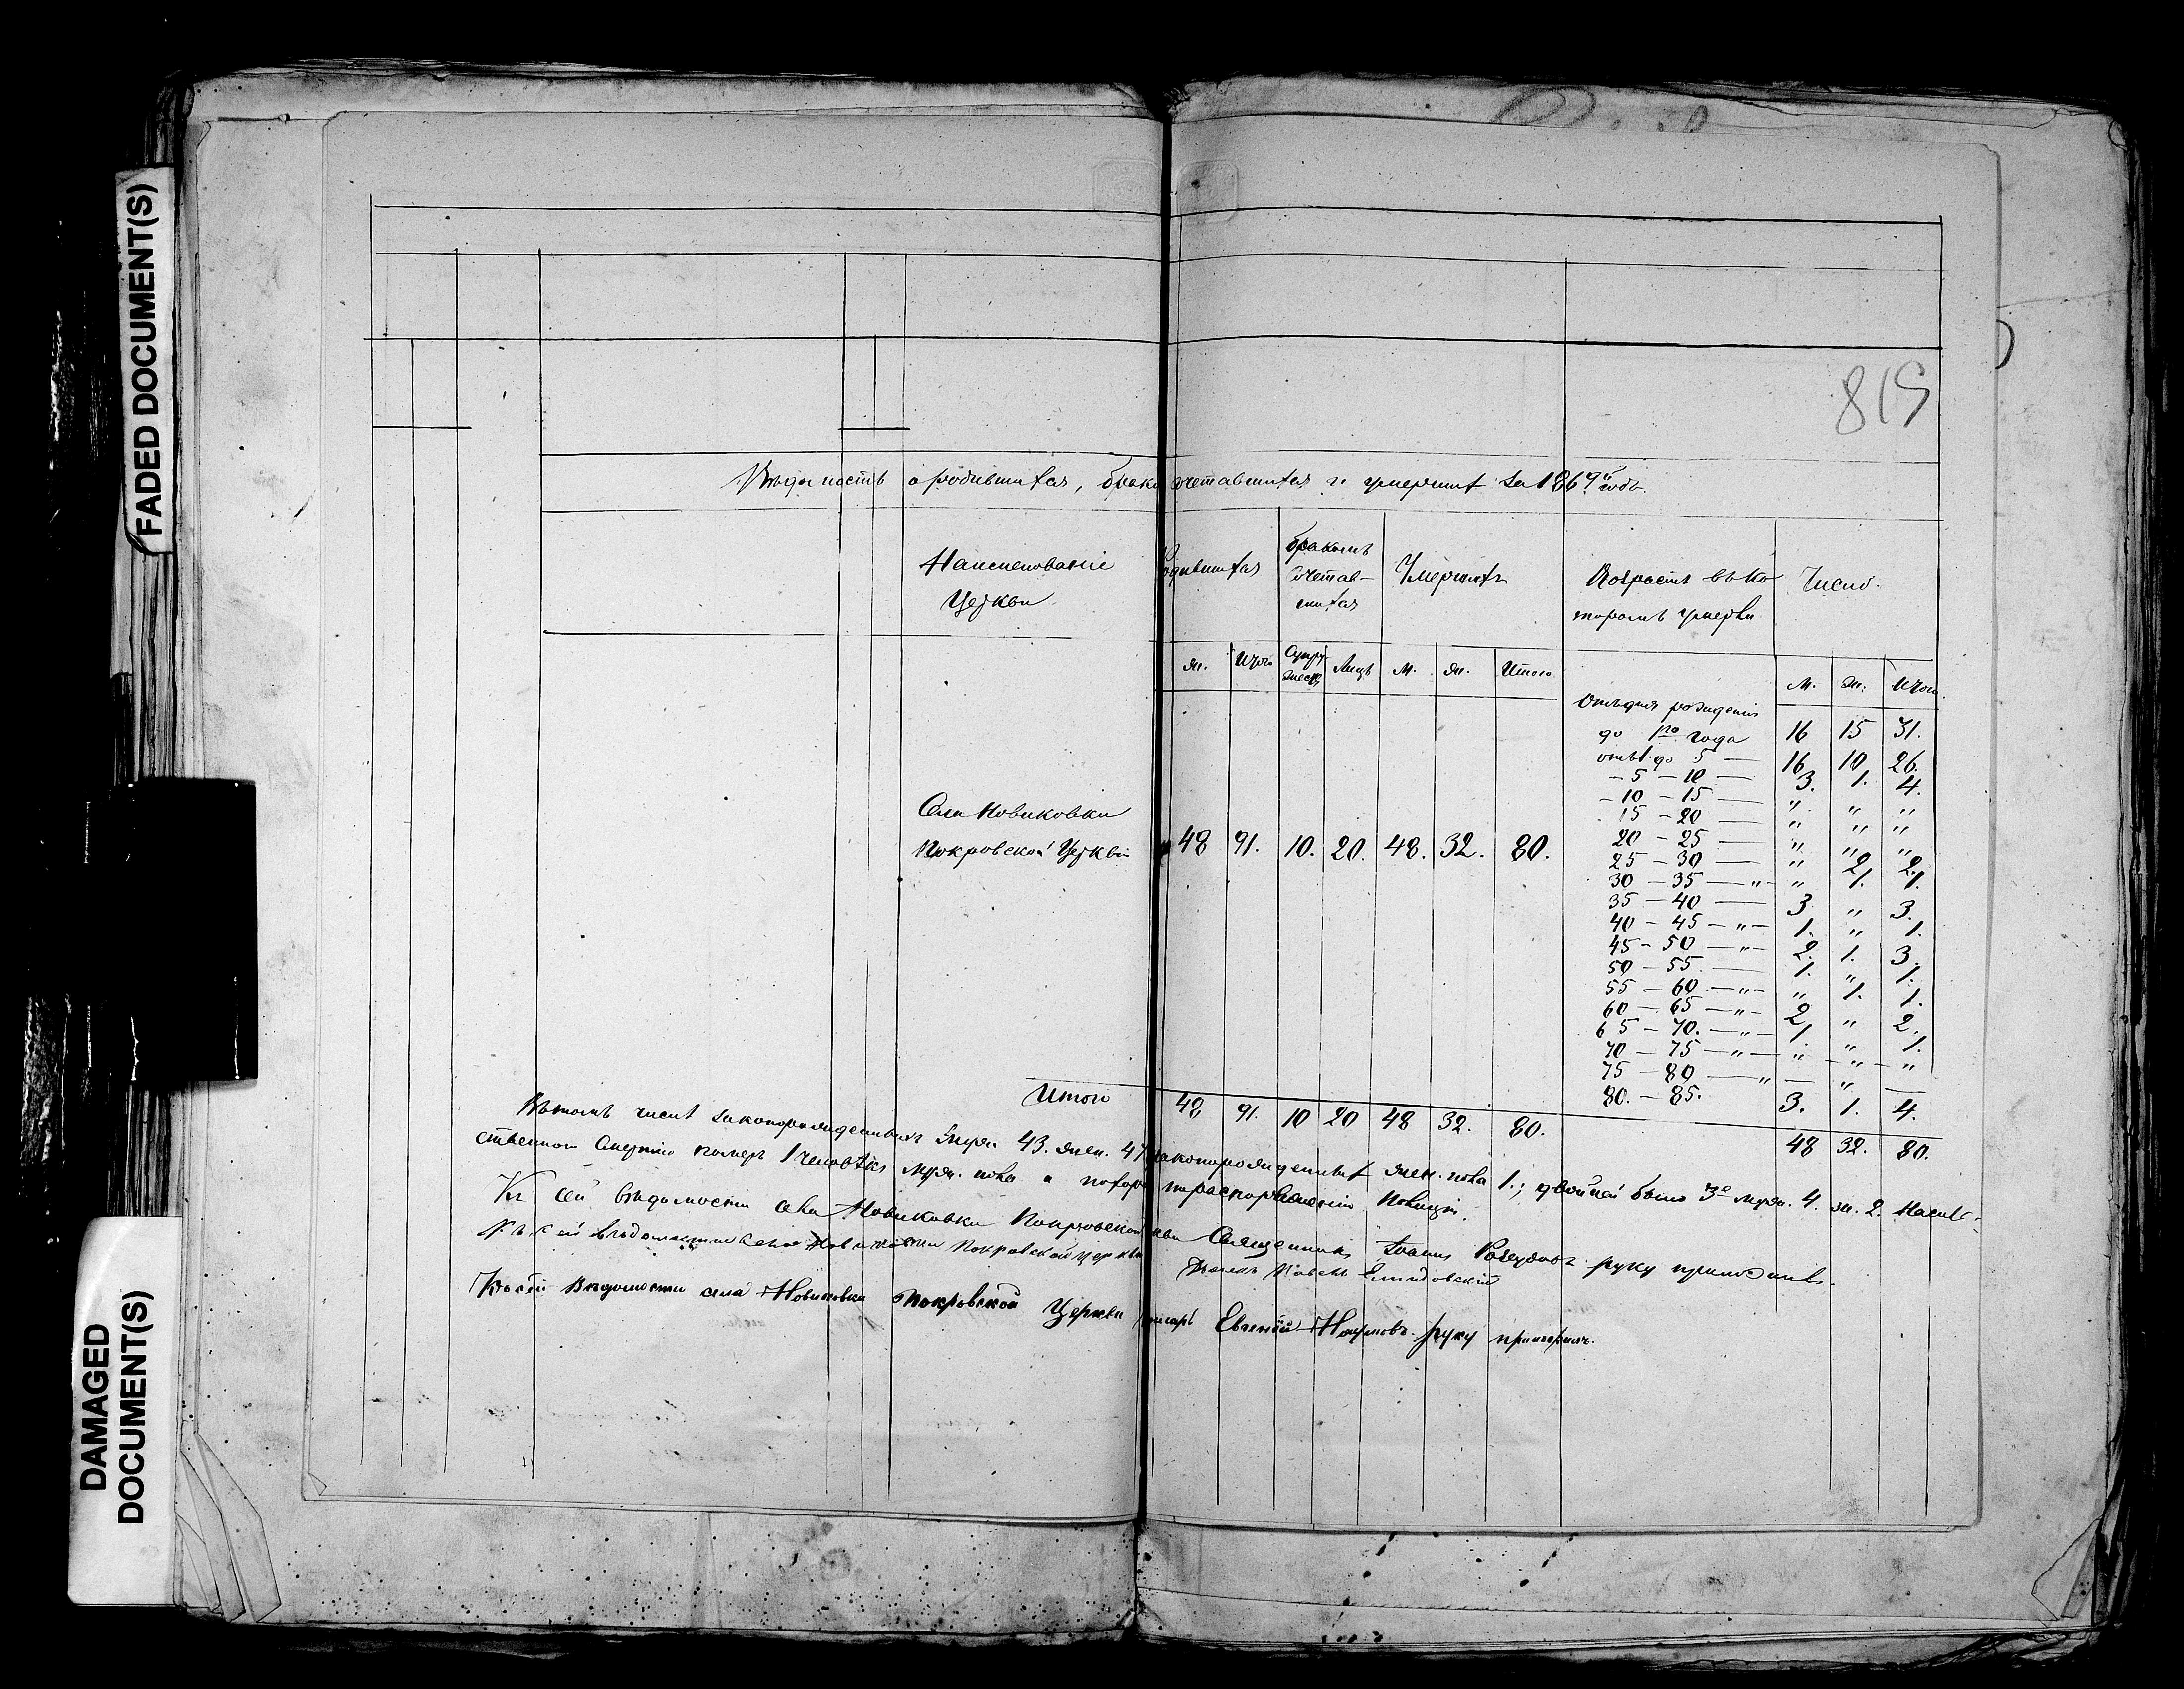 FADED DOCUMENT(S)
819
Вѣдомость о родившихся, бракосочетавшихся и умершихъ за 1869й годъ.
Наименованіе Церкви
Родившихся
Бракомъ сочетавшихся
Умершихъ
Возрастъ въ которомъ умерли
Число.
ж. Итого Супружеств. Лицъ м. ж. Итого
м. ж. Итого
Отъ дня рожденія
до 1го года 16 15 31.
отъ 1 до 5 — 16 10 26.
— 5 — 10 — 3. 1. 4.
— 10 — 15 — " " "
15 — 20 — " " "
20 — 25 — " " "
25 — 30 — " 2. 2.
30 — 35 — " — " 1. 1.
35 — 40 — 3 " 3.
40 — 45 — " — 1. " 1.
45 — 50 — " — 2. 1. 3.
50 — 55. — 1. " 1.
55 — 60 — " — " 1. 1.
60 — 65 — " — 2 " 2.
65 — 70. — " — 1 " 1.
70 — 75 — " — " " "
75 — 80 — " — "
80. — 85. 3. 1. 4.
Села Новиковки
Покровской Церкви 48 91. 10. 20. 48. 32. 80.
Итого 48 91. 10 20 48 32. 80. 48 32. 80.
Въ томъ числѣ законорожденныхъ муж. 43. жен. 47 законорожденныхъ жен. пола 1.; двойней было 3е муж. 4. ж. 2. Насиль-
ственною смертію померъ 1 человѣкъ муж. пола и похор. по распоряженію Полиціи.
Къ сей вѣдомости села Новиковки Покровской Священникъ Іоаннъ руку приложилъ.
Къ сей вѣдомости села Новиковки Покровской церкви
Къ сей Вѣдомости села Новиковки Покровской Церкви Евгеній Наумовъ руку приложилъ.
DAMAGED
DOCUMENT(S)